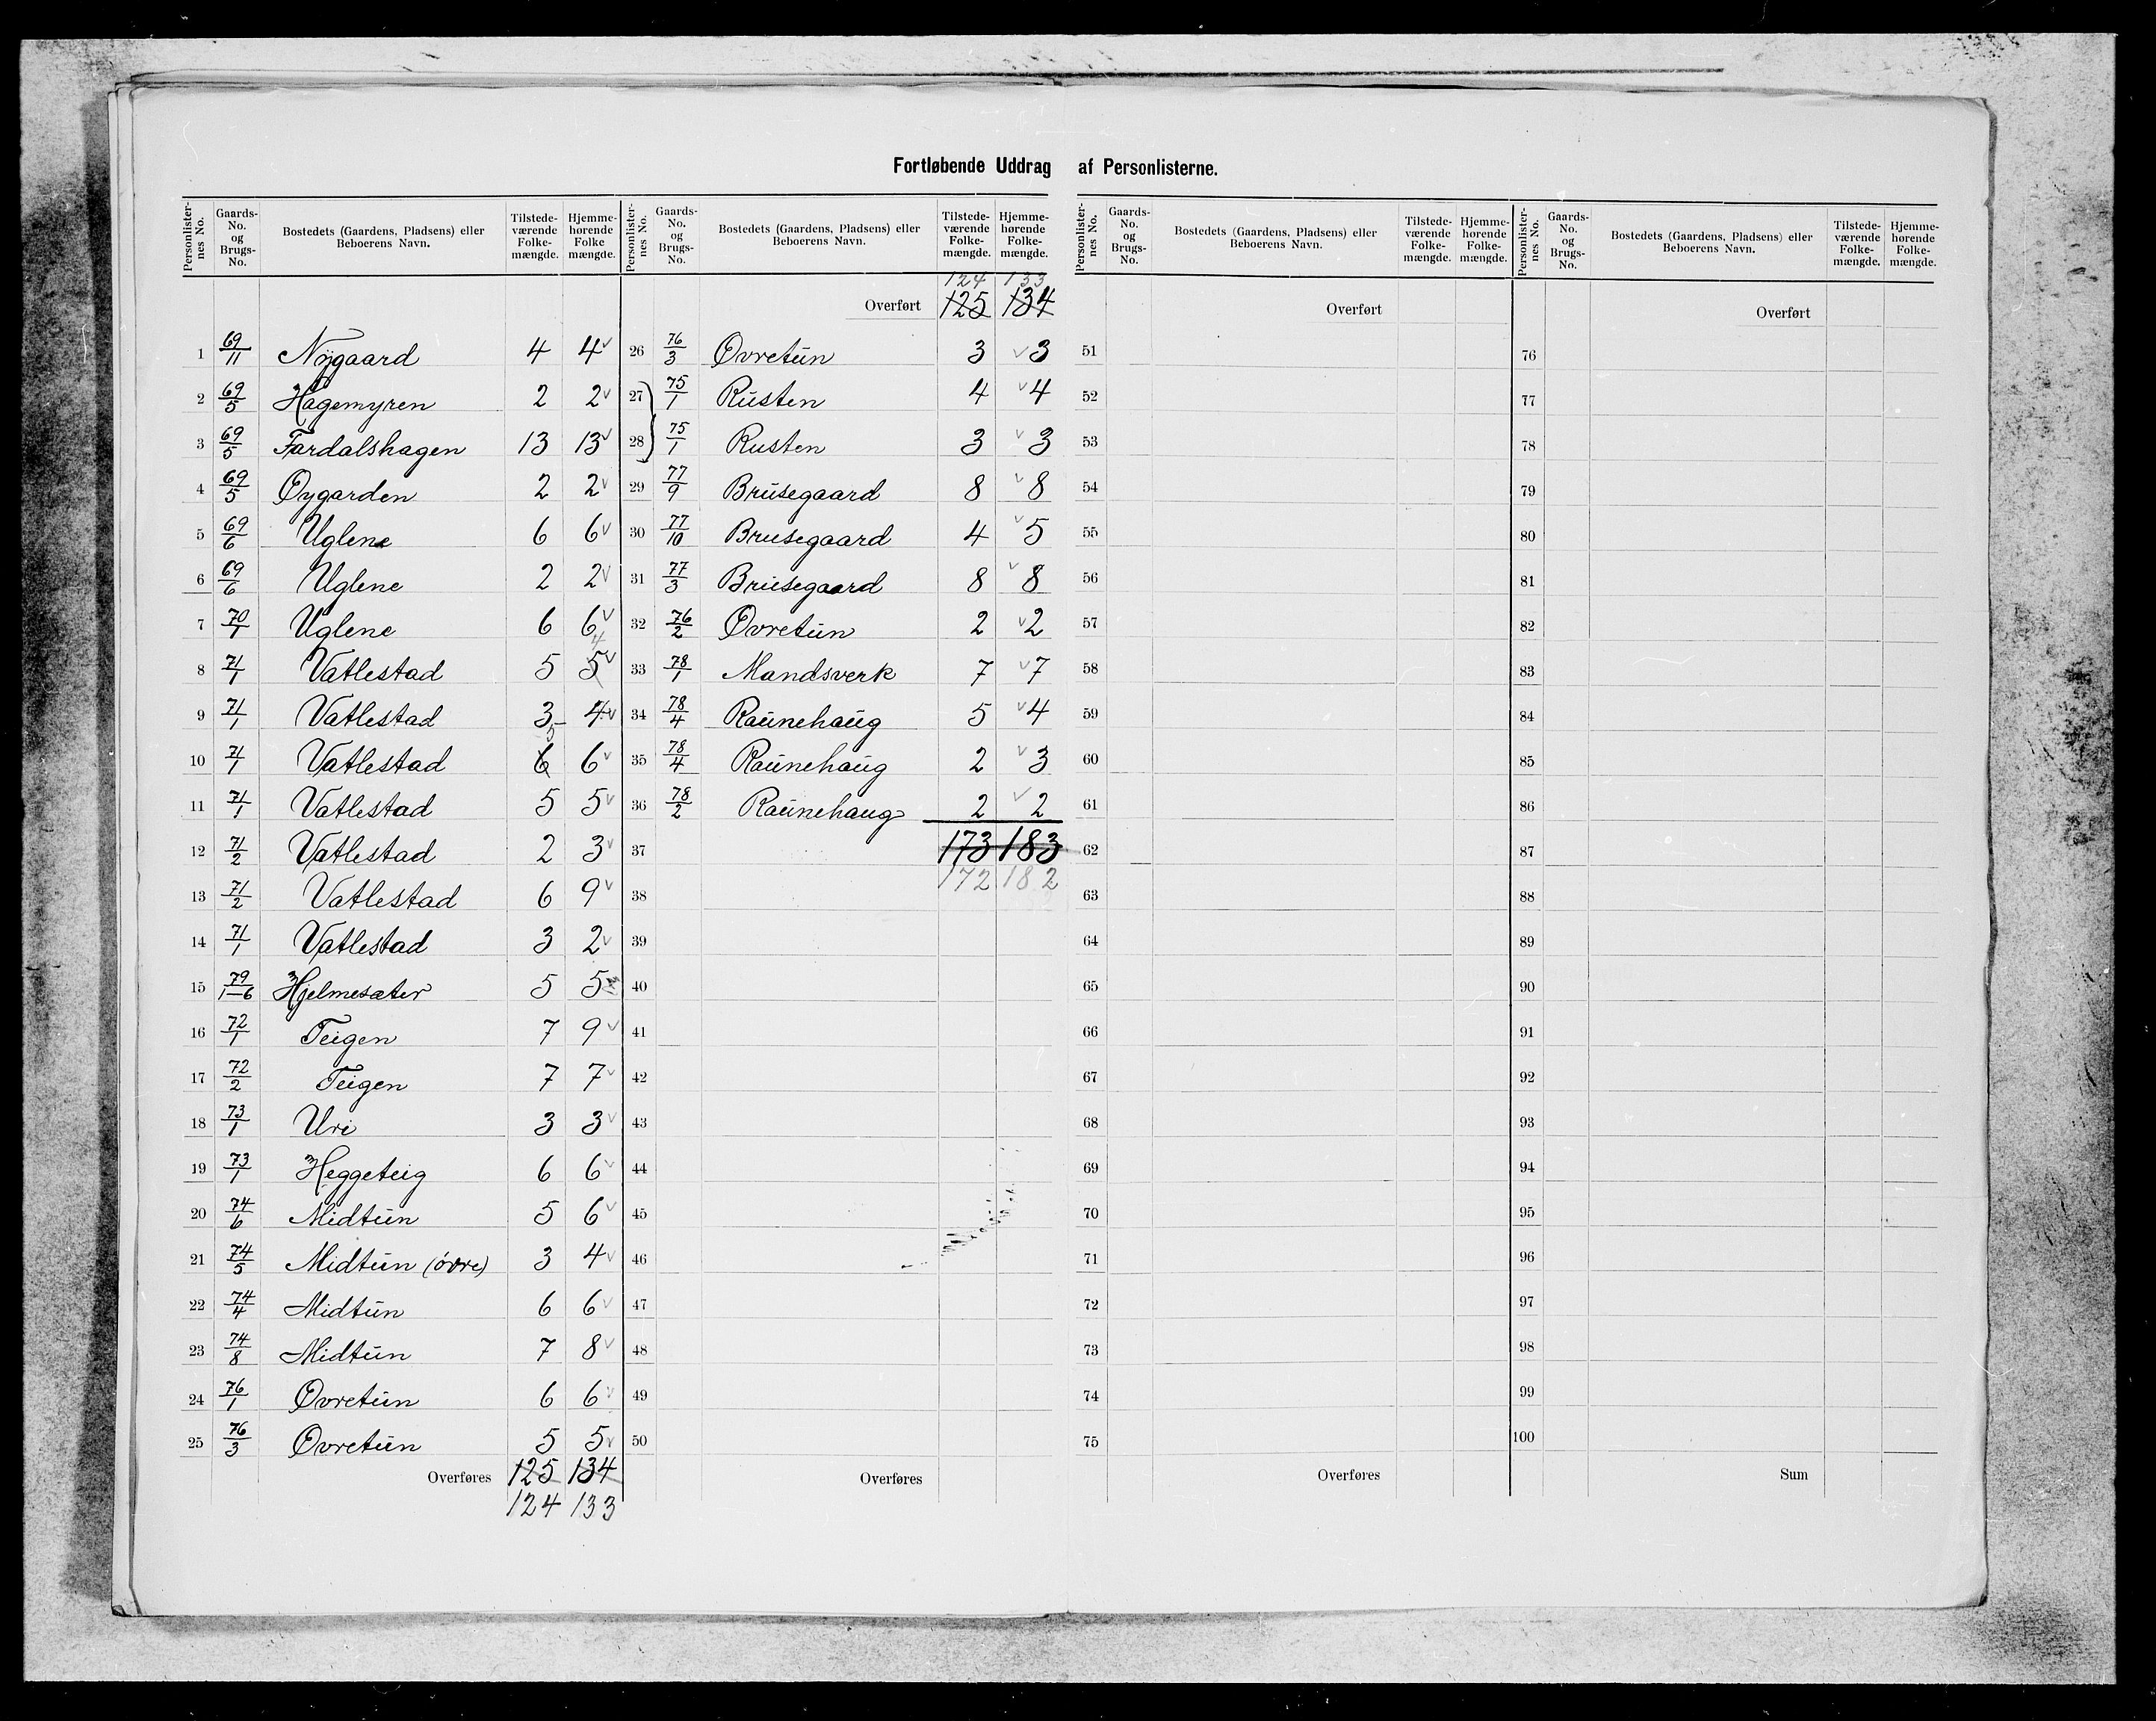 Fortløbende Uddrag af Personlisterne.
Personlister-nes No. | Gaards-No. og Brugs-No. | Bostedets (Gaardens, Pladsens) eller Beboerens Navn. | Tilstede-værende Folke-mængde. | Hjemme-hørende Folke mængde.
1 69/11 Nÿgaard 4 4 v
2 69/5 Hagemyren 2 2 v
3 69/5 Fardalshagen 13 13 v
4 69/5 Øygarden 2 2 v
5 69/6 Uglene 6 6 v
6 69/6 Uglene 2 2 v
7 70/1 Uglene 6 6 v
8 71/1 Vatlestad 5 5 4 v
9 71/1 Vatlestad 3 4 v
10 71/1 Vatlestad 6 5 6 v
11 71/1 Vatlestad 5 5 v
12 71/2 Vatlestad 2 3 v
13 71/2 Vatlestad 6 9 v
14 71/1 Vatlestad 3 2 v
15 79/1-6 Hjelmesæter 5 5
16 72/1 Teigen 7 9 v
17 72/2 Teigen 7 7 v
18 73/1 Uri 3 3 v
19 73/1 Heggeteig 6 6 v
20 74/6 Midtŭn 5 6 v
21 74/5 Midtŭn (övre) 3 4 v
22 74/4 Midtŭn 6 6 v
23 74/8 Midtŭn 7 8 v
24 76/1 Øvretŭn 6 6 v
25 76/3 Øvretŭn 5 5 v
Overføres 125 134
124 133
Personlister-nes No. | Gaards-No. og Brugs-No. | Bostedets (Gaardens, Pladsens) eller Beboerens Navn. | Tilstede-værende Folke-mængde. | Hjemme-hørende Folke-mængde.
124 133
Overført 125 134
26 76/3 Øvretŭn 3 v 3
27 75/1 Rŭsten 4 v 4
28 75/1 Rusten 3 v 3
29 77/9 Brŭsegaard 8 v 8
30 77/10 Brusegaard 4 v 5
31 77/3 Brŭsegaard 8 v 8
32 76/2 Øvretŭn 2 v 2
33 78/1 Mandsverk 7 v 7
34 78/4 Raŭnehaŭg 5 v 4
35 78/4 Raŭnehaŭg 2 v 3
36 78/2 Raŭnehaug 2 v 2
37 173 183
38 172 182
39
40
41
42
43
44
45
46
47
48
49
50
Overføres
Personlister-nes No. | Gaards-No. og Brugs-No. | Bostedets (Gaardens, Pladsens) eller Beboerens Navn. | Tilstede-værende Folke-mængde. | Hjemme-hørende Folke-mængde.
Overført
51
52
53
54
55
56
57
58
59
60
61
62
63
64
65
66
67
68
69
70
71
72
73
74
75
Overføres
Personlister-nes No. | Gaards-No. og Brugs-No. | Bostedets (Gaardens, Pladsens) eller Beboerens Navn. | Tilstede-værende Folke-mængde. | Hjemme-hørende Folke-mængde.
Overført
76
77
78
79
80
81
82
83
84
85
86
87
88
89
90
91
92
93
94
95
96
97
98
99
100
Sum